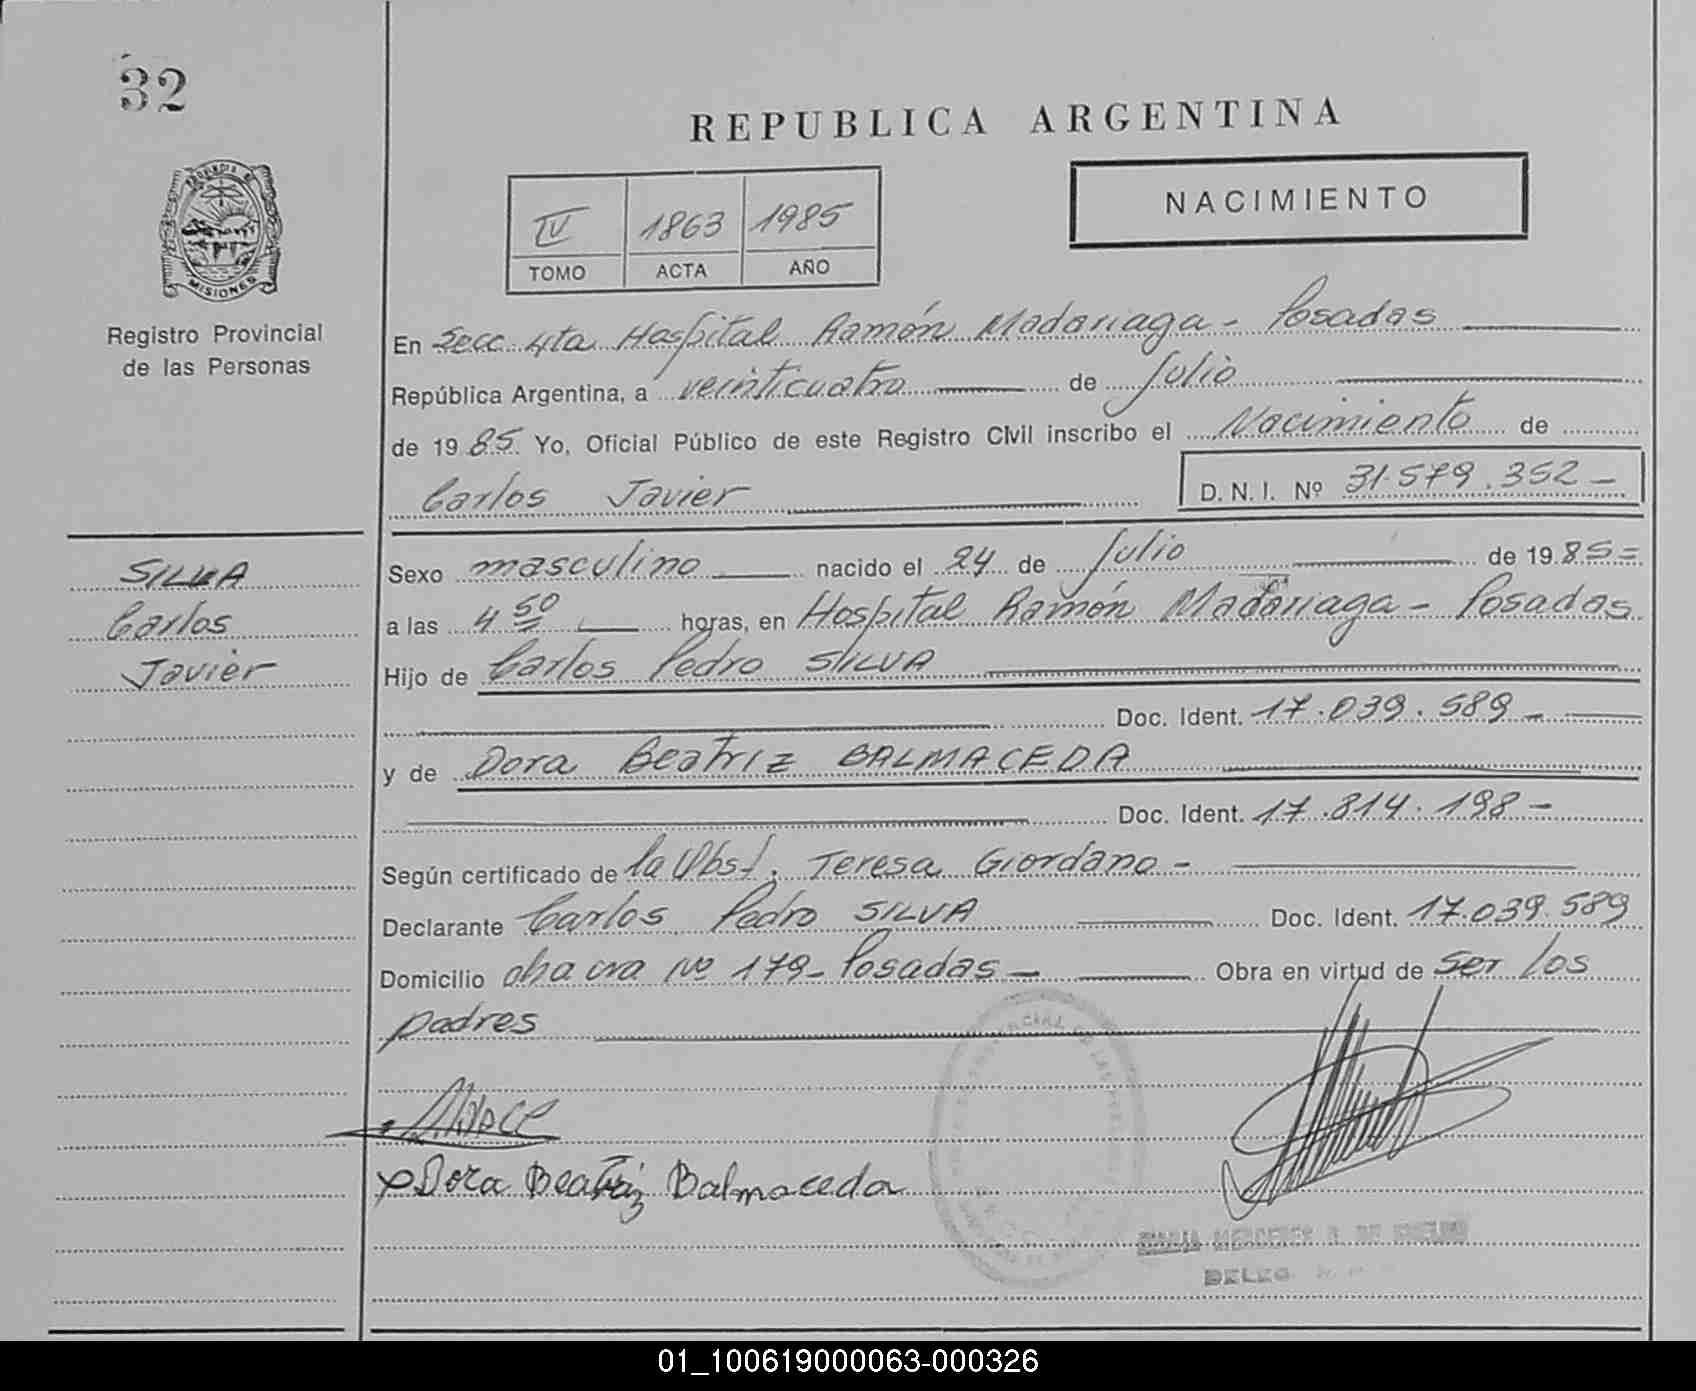 32
REPUBLICA ARGENTINA
PROVINCIA DE
MISIONES
Registro Provincial
de las Personas
IV 1863 1985
TOMO ACTA AÑO
NACIMIENTO
En Secc. 4ta Hospital Ramón Madariaga - Posadas
República Argentina, a veinticuatro de Julio
de 1985. Yo, Oficial Público de este Registro Civil inscribo el Nacimiento de
Carlos Javier D. N. I. Nº 31.579.352 -
SILVA
Carlos
Javier
Sexo masculino nacido el 24 de Julio de 1985=
a las 4 50 horas, en Hospital Ramón Madariaga - Posadas
Hijo de Carlos Pedro SILVA
Doc. Ident. 17.039.589 -
y de Dora Beatriz BALMACEDA
Doc. Ident. 17.814.198 -
Según certificado de la Obst. Teresa Giordano -
Declarante Carlos Pedro SILVA Doc. Ident. 17.039.589
Domicilio chacra Nº 179 - Posadas - Obra en virtud de ser los
padres
x Dora Beatriz Balmaceda
MERCEDES
DELEG
01_100619000063-000326